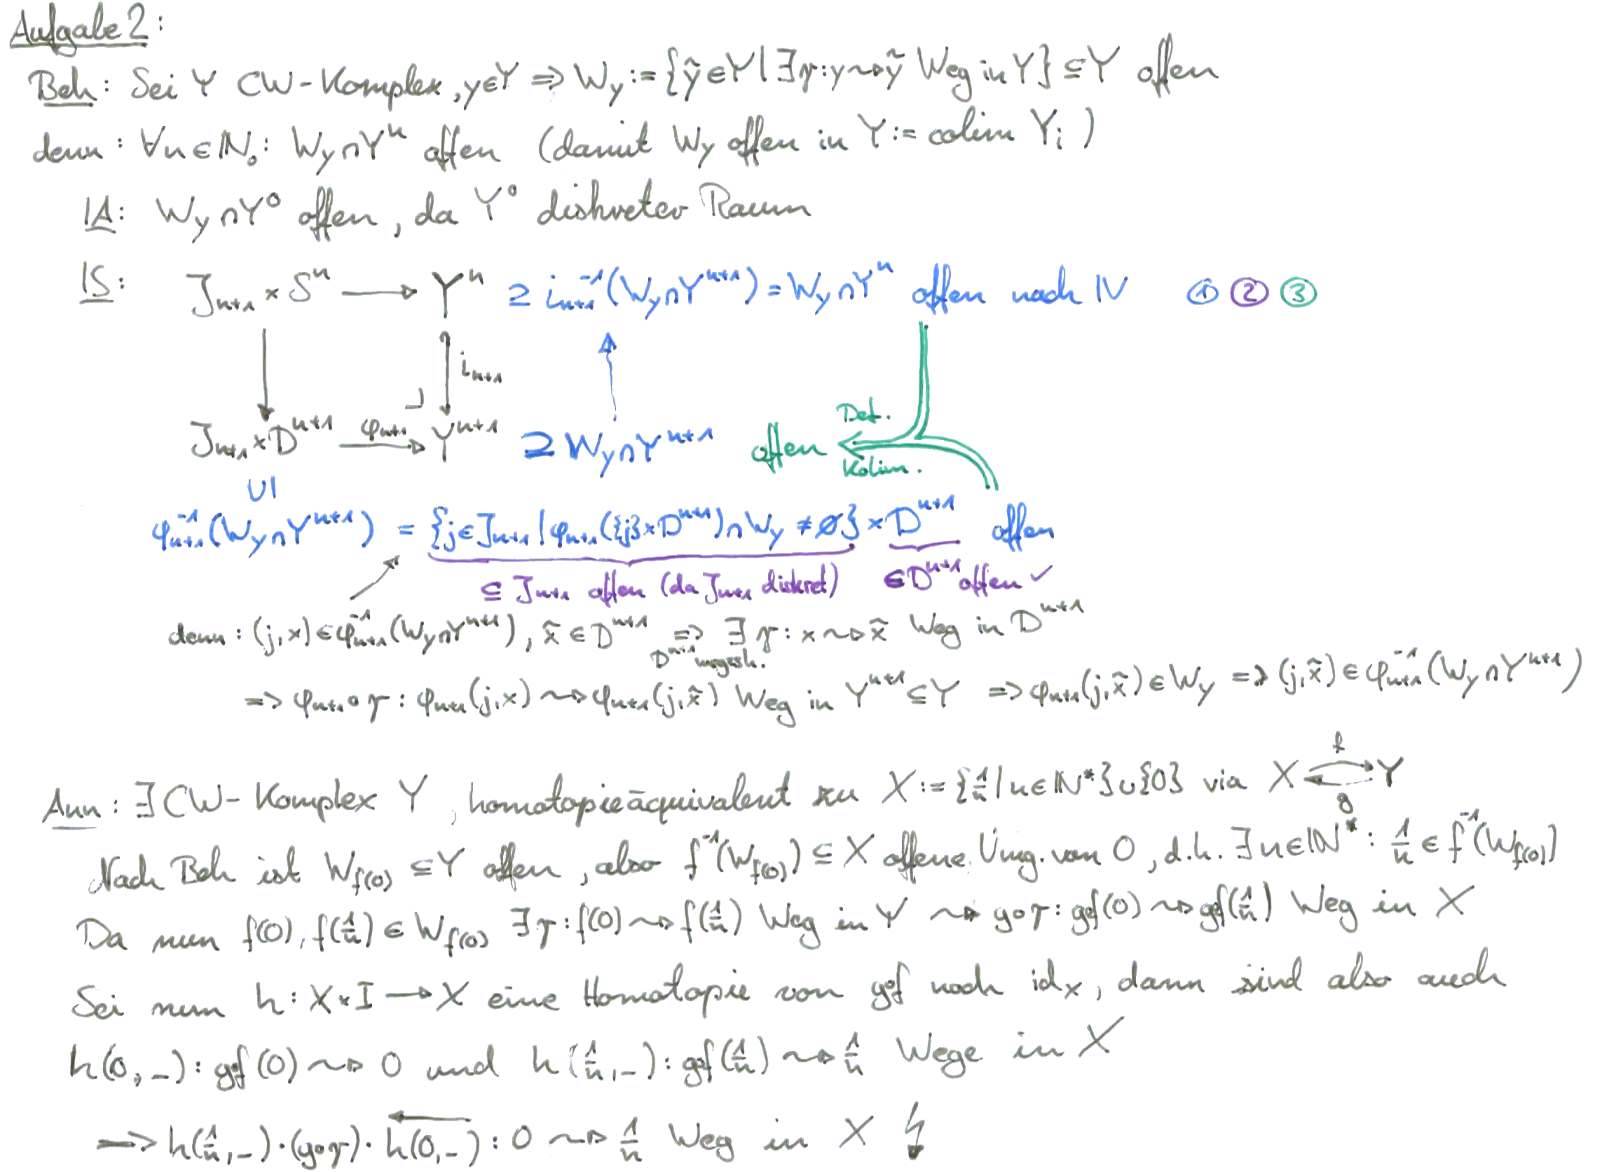 Aufgabe 2:
Beh: Sei Y CW-Komplex, y∈Y ⇒ W_y := {ỹ∈Y | ∃γ: y⇝ỹ Weg in Y} ⊆ Y offen
denn: ∀n∈ℕ₀: W_y∩Yⁿ offen (damit W_y offen in Y := colim Y_i)
IA: W_y∩Y⁰ offen, da Y⁰ diskreter Raum
IS: J_{n+1} × Sⁿ → Yⁿ ⊇ i_{n+1}^{-1}(W_y∩Y^{n+1}) = W_y∩Yⁿ offen nach IV ① ② ③
i_{n+1}
Def.
J_{n+1} × D^{n+1} →^{φ_{n+1}} Y^{n+1} ⊇ W_y∩Y^{n+1} offen
Kolim.
∪|
φ_{n+1}^{-1}(W_y∩Y^{n+1}) = {j∈J_{n+1} | φ_{n+1}({j}×D^{n+1})∩W_y ≠ ∅} × D^{n+1} offen
⊆ J_{n+1} offen (da J_{n+1} diskret) ⊆ D^{n+1} offen ✓
denn: (j,x)∈φ_{n+1}^{-1}(W_y∩Y^{n+1}), x̃∈D^{n+1} ⇒ ∃γ: x⇝x̃ Weg in D^{n+1}
D^{n+1} wegzsh.
⇒ φ_{n+1}∘γ: φ_{n+1}(j,x) ⇝ φ_{n+1}(j,x̃) Weg in Y^{n+1} ⊆ Y ⇒ φ_{n+1}(j,x̃)∈W_y ⇒ (j,x̃)∈φ_{n+1}^{-1}(W_y∩Y^{n+1})
Ann: ∃ CW-Komplex Y, homotopieäquivalent zu X := {1/n | n∈ℕ*}∪{0} via X ⇄ Y
f
g
Nach Beh ist W_{f(0)} ⊆ Y offen, also f^{-1}(W_{f(0)}) ⊆ X offene Umg. von 0, d.h. ∃n∈ℕ*: 1/n ∈ f^{-1}(W_{f(0)})
Da nun f(0), f(1/n) ∈ W_{f(0)} ∃γ: f(0)⇝f(1/n) Weg in Y ⇝ g∘γ: gf(0)⇝gf(1/n) Weg in X
Sei nun h: X×I → X eine Homotopie von gf nach id_X, dann sind also auch
h(0,–): gf(0) ⇝ 0 und h(1/n,–): gf(1/n) ⇝ 1/n Wege in X
⇒ h(1/n,–)·(g∘γ)·\overleftarrow{h(0,–)}: 0 ⇝ 1/n Weg in X ↯